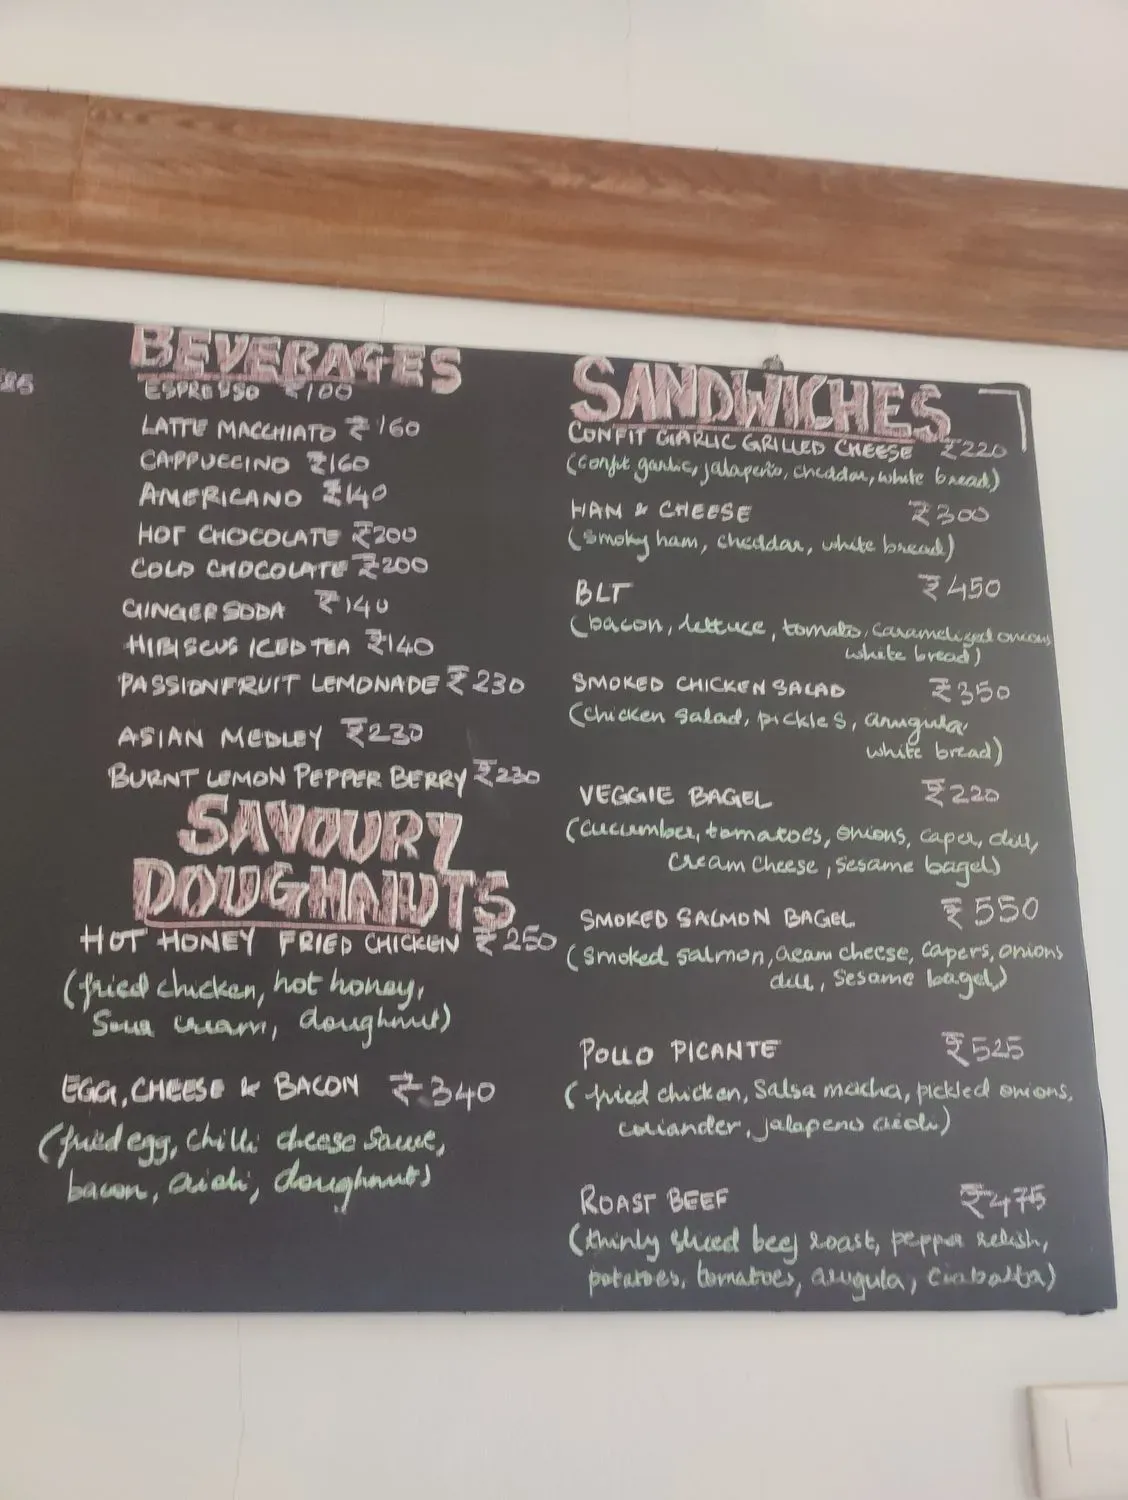 85
BEVERAGES
ESPRESSO ₹100
LATTE MACCHIATO ₹160
CAPPUCCINO ₹160
AMERICANO ₹140
HOT CHOCOLATE ₹200
COLD CHOCOLATE ₹200
GINGER SODA ₹140
HIBISCUS ICED TEA ₹140
PASSIONFRUIT LEMONADE ₹230
ASIAN MEDLEY ₹230
BURNT LEMON PEPPER BERRY ₹230
SAVOURY
DOUGHNUTS
HOT HONEY FRIED CHICKEN ₹250
(fried chicken, hot honey,
Sour cream, doughnut)
EGG, CHEESE & BACON ₹340
(fried egg, chilli cheese sauce,
bacon, aioli, doughnut)
SANDWICHES
CONFIT GARLIC GRILLED CHEESE ₹220
(confit garlic, jalapeño, cheddar, white bread)
HAM & CHEESE ₹300
(smoky ham, cheddar, white bread)
BLT ₹450
(bacon, lettuce, tomato, caramelized onions
white bread)
SMOKED CHICKEN SALAD ₹350
(chicken salad, pickles, arugula
white bread)
VEGGIE BAGEL ₹220
(cucumber, tomatoes, onions, caper, dill,
cream cheese, sesame bagel)
SMOKED SALMON BAGEL ₹550
(smoked salmon, cream cheese, capers, onions
dill, sesame bagel)
POLLO PICANTE ₹525
(fried chicken, salsa macha, pickled onions,
coriander, jalapeno aioli)
ROAST BEEF ₹475
(thinly sliced beef roast, pepper relish,
potatoes, tomatoes, arugula, ciabatta)